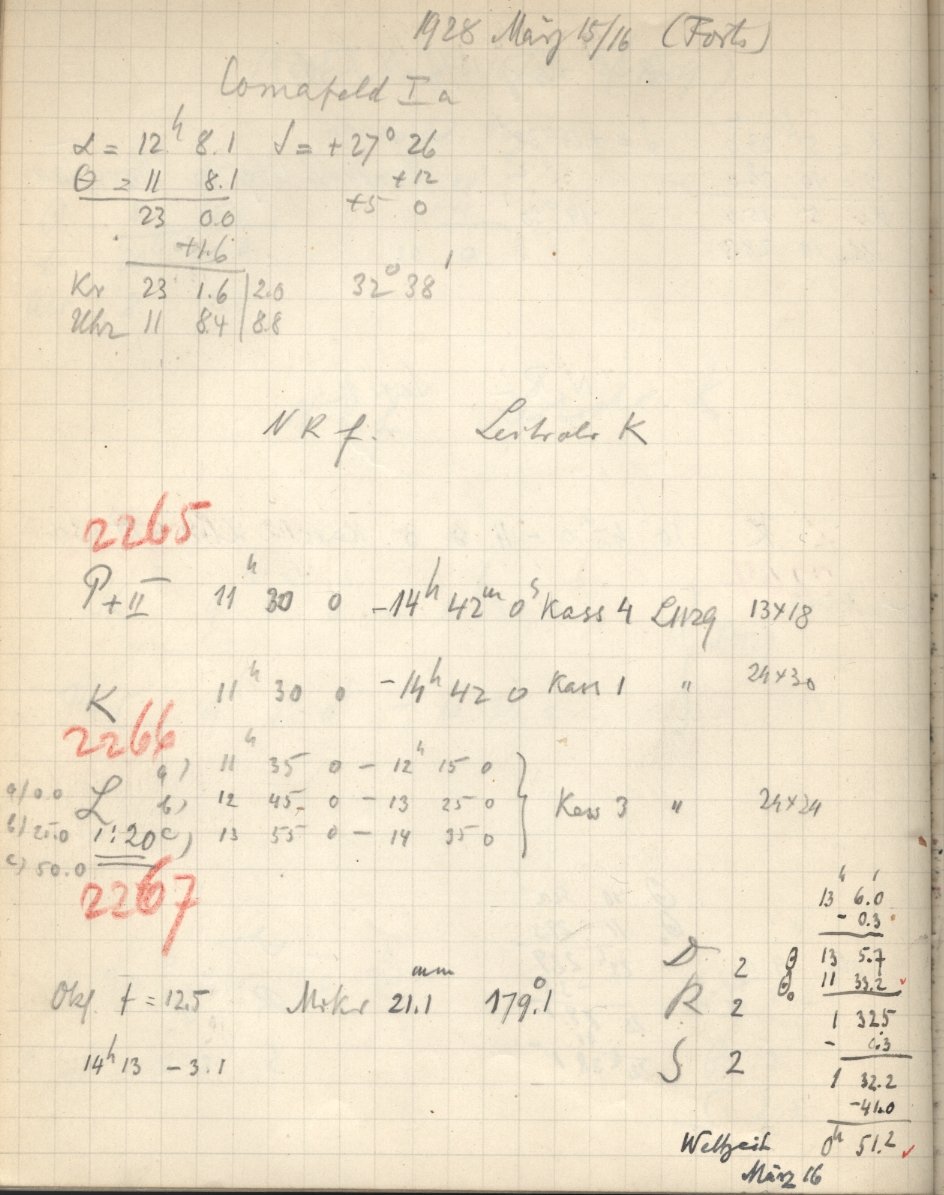 1928 März 15/16 (Forts)
Comafeld I a
α = 12h 8.1 δ = +27° 26
θ = 11 8.1 +12
23 0.0 +5 0
+1.6
Kr 23 1.6 | 2.0 32° 38'
Uhr 11 8.4 | 8.8
N R f. Leitrohr K
2265
P + II 11h 30 0 - 14h 42m 0s Kass 4 13×18
K 11h 30 0 - 14h 42 0 Kass 1 " 24×30
2266
a) 11h 35 0 - 12h 15 0
a) 0.0 L b) 12 45 0 - 13 25 0 Kass 3 " 24×24
b) 25.0 1:20 c) 13 55 0 - 14 35 0
c) 50.0
2267
13h 6.0'
- 0.3
D 2 θ 13 5.7
Obj t = 12.5 Mikr 21.1mm 179.°1 R 2 θ₀ 11 33.2
1 32.5
- 0.3
14h 13 - 3.1 S 2 1 32.2
-41.0
Weltzeit 0h 51.2
März 16